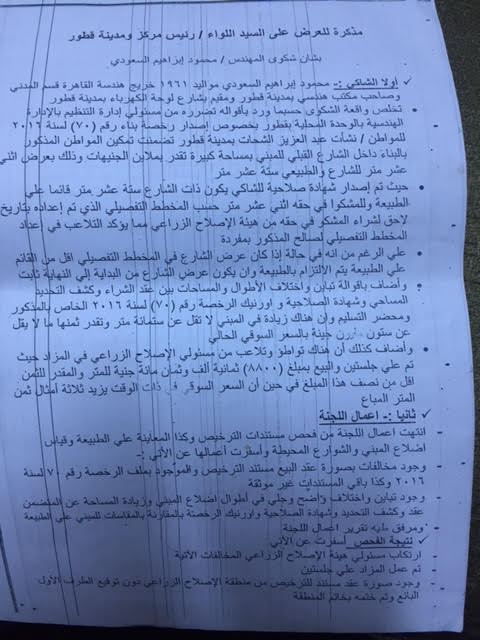 مذكرة للعرض على السيد اللواء / رئيس مركز ومدينة قطور
بشان شكوى المهندس / محمود إبراهيم السعودي
أولا الشاكي :- محمود إبراهيم السعودي مواليد ١٩٦١ خريج هندسة القاهرة قسم المدني
وصاحب مكتب هندسي بمدينة قطور ومقيم بشارع لوحة الكهرباء بمدينة قطور
تخلص واقعة الشكوى حسبما ورد بأقواله تضرره من مسئولي إدارة التنظيم بالإدارة
الهندسية بالوحدة المحلية بقطور بخصوص إصدار رخصة بناء رقم (٧٠) لسنة ٢٠١٦
للمواطن / نشأت عبد العزيز الشحات بمدينة قطور تضمنت تمكين المواطن المذكور
بالبناء داخل الشارع القبلي للمبني بمساحة كبيرة تقدر بملابن الجنيهات وذلك بعرض اثني
عشر متر للشارع والطبيعي ستة عشر متر
حيث تم إصدار شهادة صلاحية للشاكي يكون ذات الشارع ستة عشر متر قائما علي
الطبيعة وللمشكوا في حقه اثني عشر متر حسب المخطط التفصيلي الذي تم إعداده بتاريخ
لاحق لشراء المشكر في حقه من هيئة الإصلاح الزراعي مما يؤكد التلاعب في إعداد
المخطط التفصيلي لصالح المذكور بمفردة
علي الرغم من انه في حالة إذا كان عرض الشارع في المخطط التفصيلي اقل من القائم
علي الطبيعة يتم الالتزام بالطبيعة وان يكون عرض الشارع من البداية إلي النهاية ثابت
وأضاف باقوالة تباين واختلاف الأطوال والمساحات بين عقد الشراء وكشف التحديد
المساحي وشهادة الصلاحية و اورنيك الرخصة رقم (٧٠) لسنة ٢٠١٦ الخاص بالمذكور
ومحضر التسليم وان هناك زيادة في المبني لا تقل عن ستمائة متر وتقدر ثمنها ما لا يقل
عن ستون جينة بالسعر السوقي الحالي
وأضاف كذلك أن هناك تواطؤ وتلاعب من مسئولي الإصلاح الزراعي في المزاد حيث
تم علي جلستين والبيع بمبلغ (٨٨٠٠) ثمانية ألف وثمان مائة جنية للمتر والمقدر للثمن
اقل من نصف هذا المبلغ في حين أن السعر السوقي في ذات الوقت يزيد ثلاثة أمثال ثمن
المتر المباع
ثانيا :- اعمال اللجنة
انتهت اعمال اللجنة من فحص مستندات الترخيص وكذا المعاينة علي الطبيعة وقياس
اضلاع المبني والشوارع المحيطة وأسفرت أعمالها عن الأتي :-
وجود مخالفات بصورة عقد البيع مستند الترخيص والموجود بملف الرخصة رقم ٧٠ لسنة
٢٠١٦ وكذا باقي المستندات غير موثقة
وجود تباين واختلاف واضح وجلي في أطوال اضلاع المبني وزيادة المساحة عن المتضمن
عقد وكشف التحديد وشهادة الصلاحية واورنيك الرخصة بالمقارنة بالمقاسات للمبني علي الطبيعة
ومرفق طيه تقرير اعمال اللجنة
نتيجة الفحص أسفرت عن الأتي
ارتكاب مسئولي هيئة الإصلاح الزراعي المخالفات الأتية
تم عمل المزاد علي جلستين
وجود صورة عقد مستند للترخيص من منطقة الإصلاح الزراعي دون توقيع الطرف الأول
البائع وتم ختمه بخاتم المنطقة